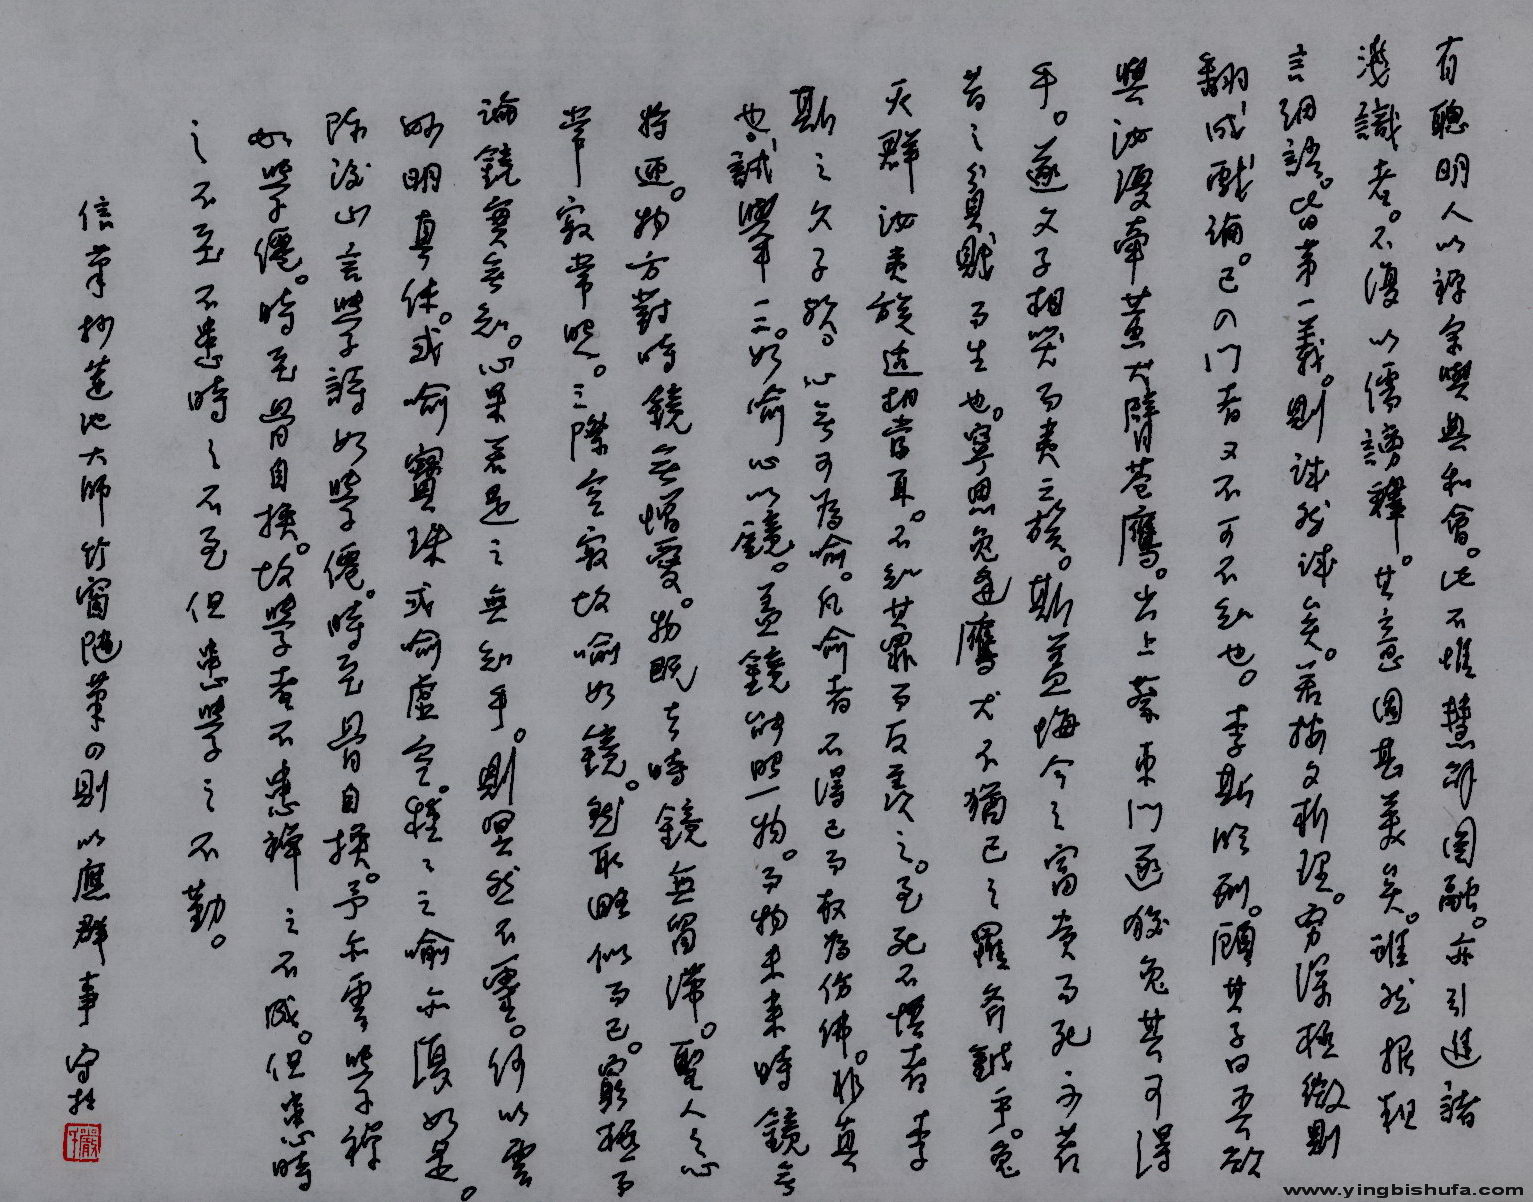 有聰明人以禪宗與典和會。此不惟慧解圓融。亦引進諸
淺識者。不復以儒謗釋。其意固甚美矣。雖然據粗
言細語。皆第一義。則誠然誠矣。若按文析理。窮深極微則
翻成戲論。已入門者又不可不知也。李斯臨刑。顧其子曰吾欲
與汝復牽黃犬臂蒼鷹。出上蔡東門逐狡兔其可得
乎。遂父子相哭而夷三族。斯蓋悔今之富貴而死不若
昔之貧賤而生也。寧思兔逢鷹犬不猶己之罹斧鉞乎。兔
滅群汝夷族適相當耳。不知其罪而反羨之。至死不悟者李
斯之父子歟。心無可為喻。凡喻者不得已而取為仿佛。非真
也。試舉一二。如喻心以鏡。蓋鏡能照一物。而物未來時鏡無
將迎。物方對時鏡無憎愛。物既去時鏡無留滯。聖人之心
常寂常照。三際空寂故喻如鏡。然取略似而已。窮極而
論鏡實無知。心果若是之無知乎。則冥然不靈。何以雲
妙明真体。或喻寶珠或喻虛空。種種之喻亦復如是。
陳後山言學詩如學僊。時至骨自換。予亦雲學禪
如學僊。時至骨自換。故學者不患禪之不成。但患時
之不至不患時之不至但患學之不勤。
信筆抄蓮池大師竹窗隨筆四則以應群事 守拙
www.yingbishufa.com